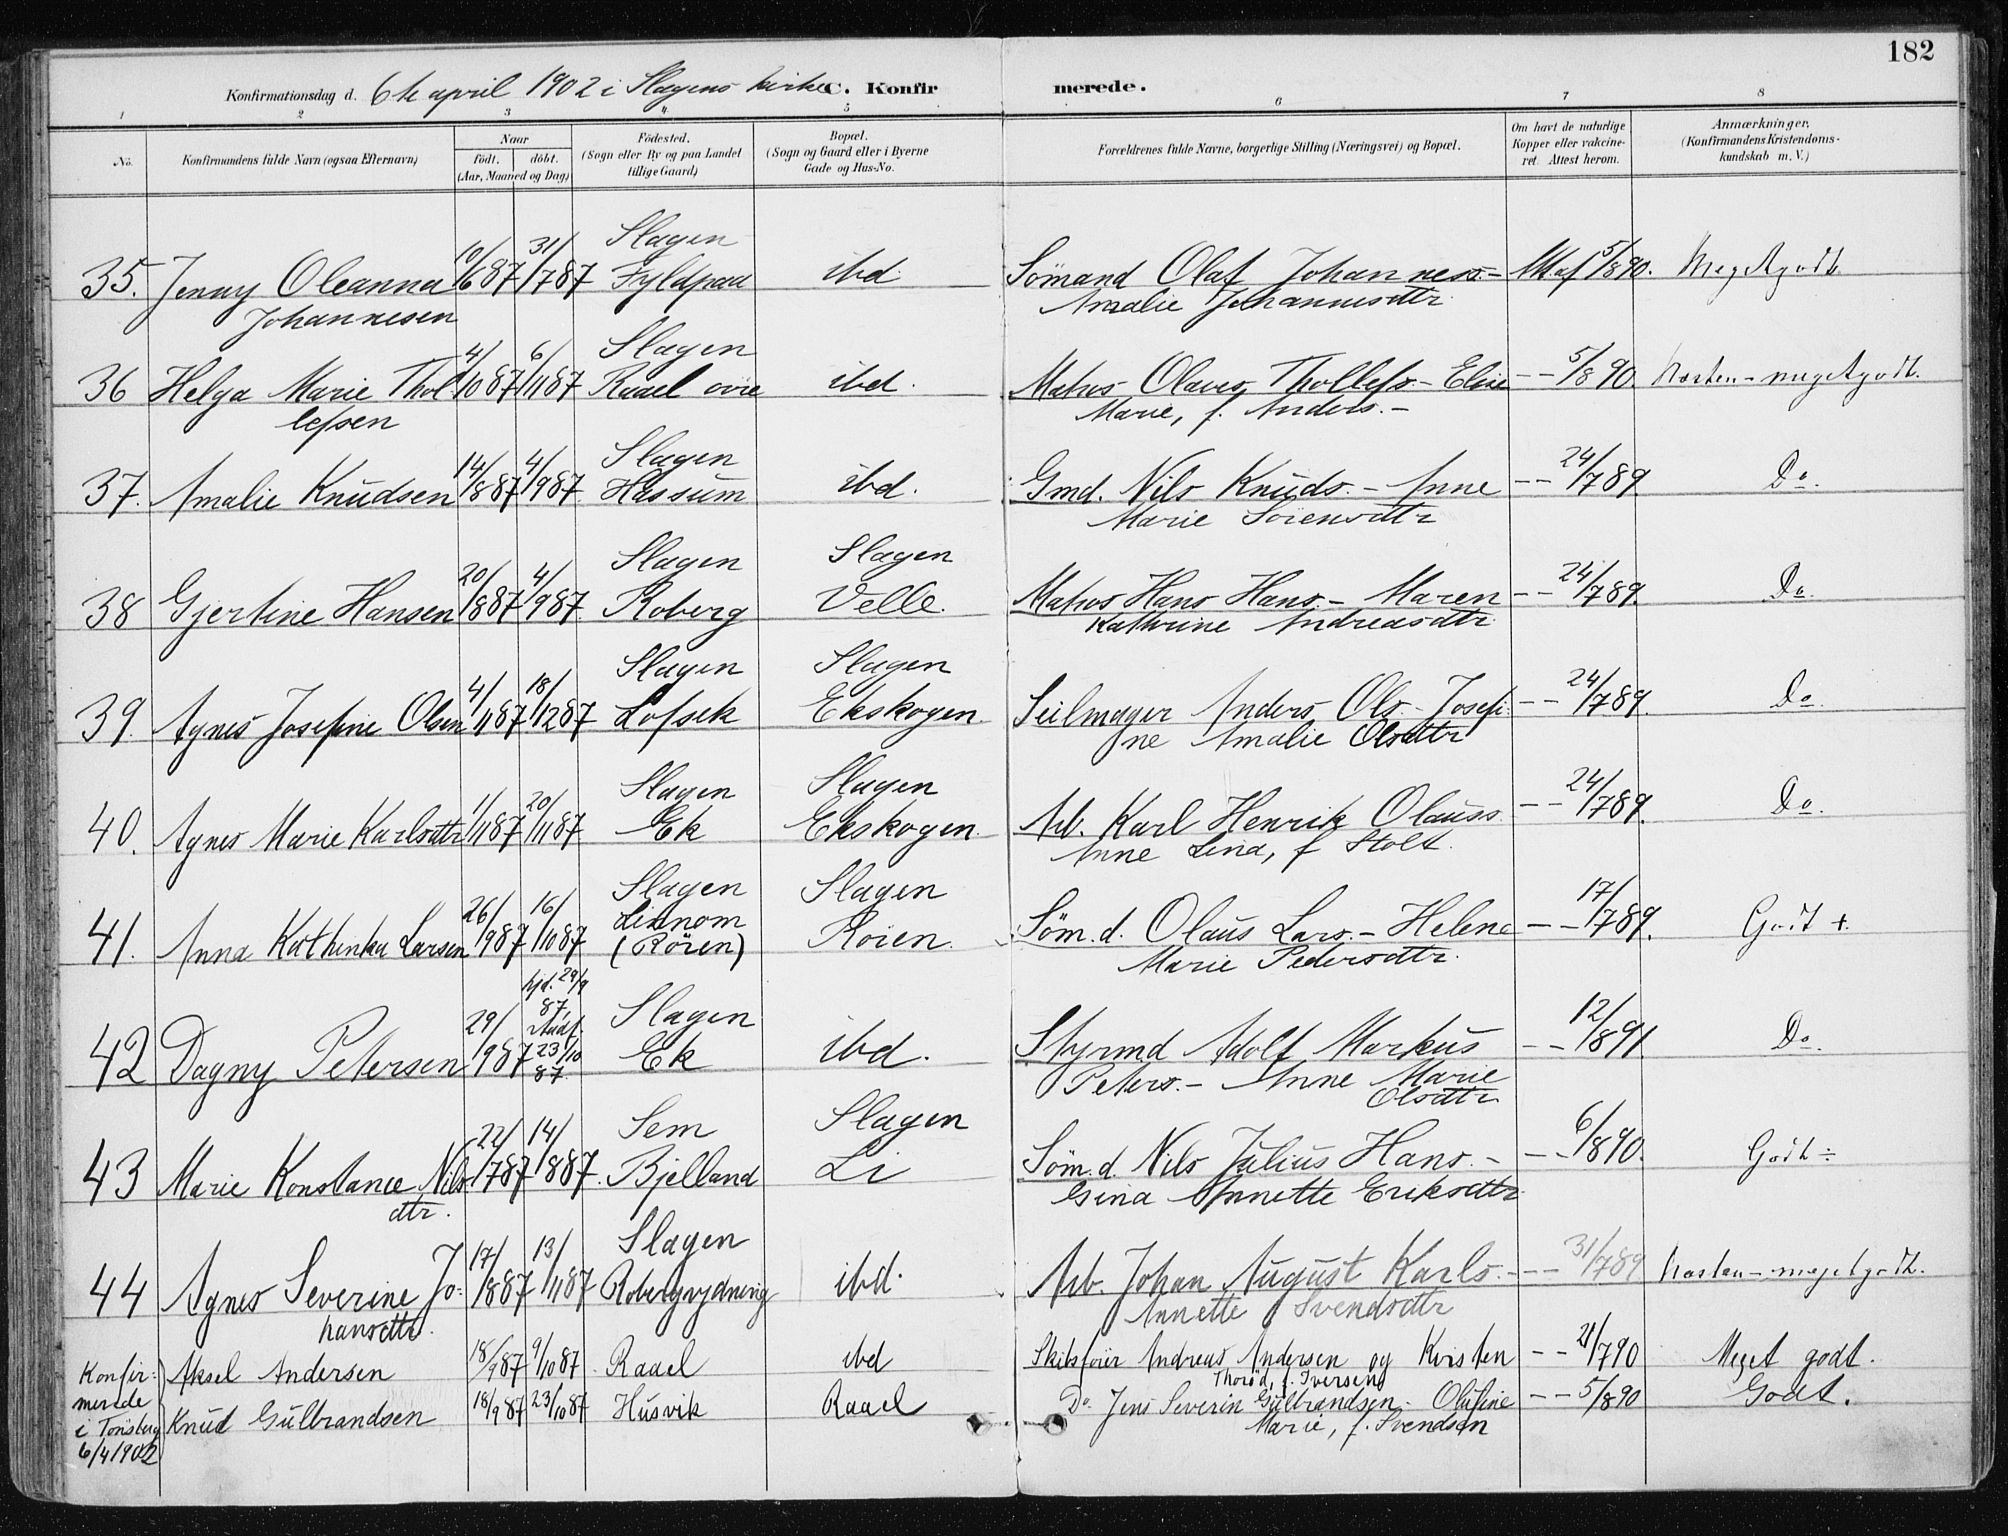 182
Konfirmationsdag d. 6te april 1902 i Slagens kirke C. Konfirmerede.
1 2 3 4 5 6 7 8
No. Konfirmandens fulde Navn (ogsaa Efternavn) Naar födt. döbt. (Aar, Maaned og Dag) Födested. (Sogn eller By og paa Landet tillige Gaard) Bopæl. (Sogn og Gaard eller i Byerne Gade og Hus-No. Forældrenes fulde Navne, borgerlige Stilling (Næringsvei) og Bopæl. Om havt de naturlige Kopper eller vakcineret. Attest herom. Anmærkninger. (Konfirmandens Kristendomskundskab m. V.)
Slagen
35. Jenny Oleanna 10/6 87 31/7 87 Fyldpaa ibd. Sömand Olaf Johanness.- 5/8 90. Megetgodt
Johannesen Amalie Johannesdtr.
Slagen
36 Helga Marie Thol 4/10 87 6/11 87 Raael övre ibd. Matros Olaves Thollefs.- Eline -- 5/8 90 Næsten-megetgodt.
lefsen Marie, f. Anders.-
Slagen
37. Amalie Knudsen 14/8 87 4/9 87 Hassum ibd. Gmd. Nils Knuds.- Anne -- 24/7 89. Do.
Marie Sörensdtr
Slagen Slagen
38 Gjertine Hansen 20/8 87 4/9 87 Roberg Velle. Matros Hans Hans.- Maren -- 24/7 89. Do.
Kathrine Andreasdtr.
Slagen Slagen
39. Agnes Josefine Olsen 4/11 87 18/12 87 Lofsek Ekskogen. Seilmager Anders Ols.- Josefi- -- 24/7 89. Do.
ne Amalie Olsdtr
Slagen Slagen
40. Agnes Marie Karlsdtr 1/11 87 20/11 87 Ek Ekskogen Arb. Karl Henrik Olauss. -- 24/7 89. Do.
Anne Lina, f Stolt.
Slagen Slagen
41. Anna Kathinka Larsen 26/9 87 16/10 87 Linnom (Rören) Röien. Söm.d. Olaus Lars.- Helene -- 17/7 89. Godt +.
Marie Pedersdtr.
hjd. 29/9 87, stadf. 23/10 87. Slagen
42 Dagny Petersen 29/9 87 Ek ibd. Styrmd Adolf Markus -- 12/8 91. Do.
Peters.- Anne Marie
Olsdtr.
Sem Slagen
43 Marie Konstance Nils 22/7 87 14/8 87. Bjelland Li Söm.d. Nils Julius Hans.- -- 6/8 90. Godt ÷
dtr. Gina Annette Eriksdtr.
Slagen
44 Agnes Severine Jo- 17/8 87 13/11 87 Robergrydning ibd. Arb. Johan August Karls.- -- 31/7 89 Næsten-megetgodt.
hansdtr. Annette Svendsdtr
Konfir- Aksel Andersen 18/9 87 9/10 87 Raael ibd Skibsförer Andreas Andersen og Kirsten -- 21/7 90 Meget godt.
merede Thorød, f. Iversen
i Tönsberg Knud Gulbrandsen 18/9 87 23/10 87 Husvik Raael Do. Jens Severin Gulbrandsen- Olufine -- 5/8 90 Godt.
6/4 1902 Marie, f. Svendsen